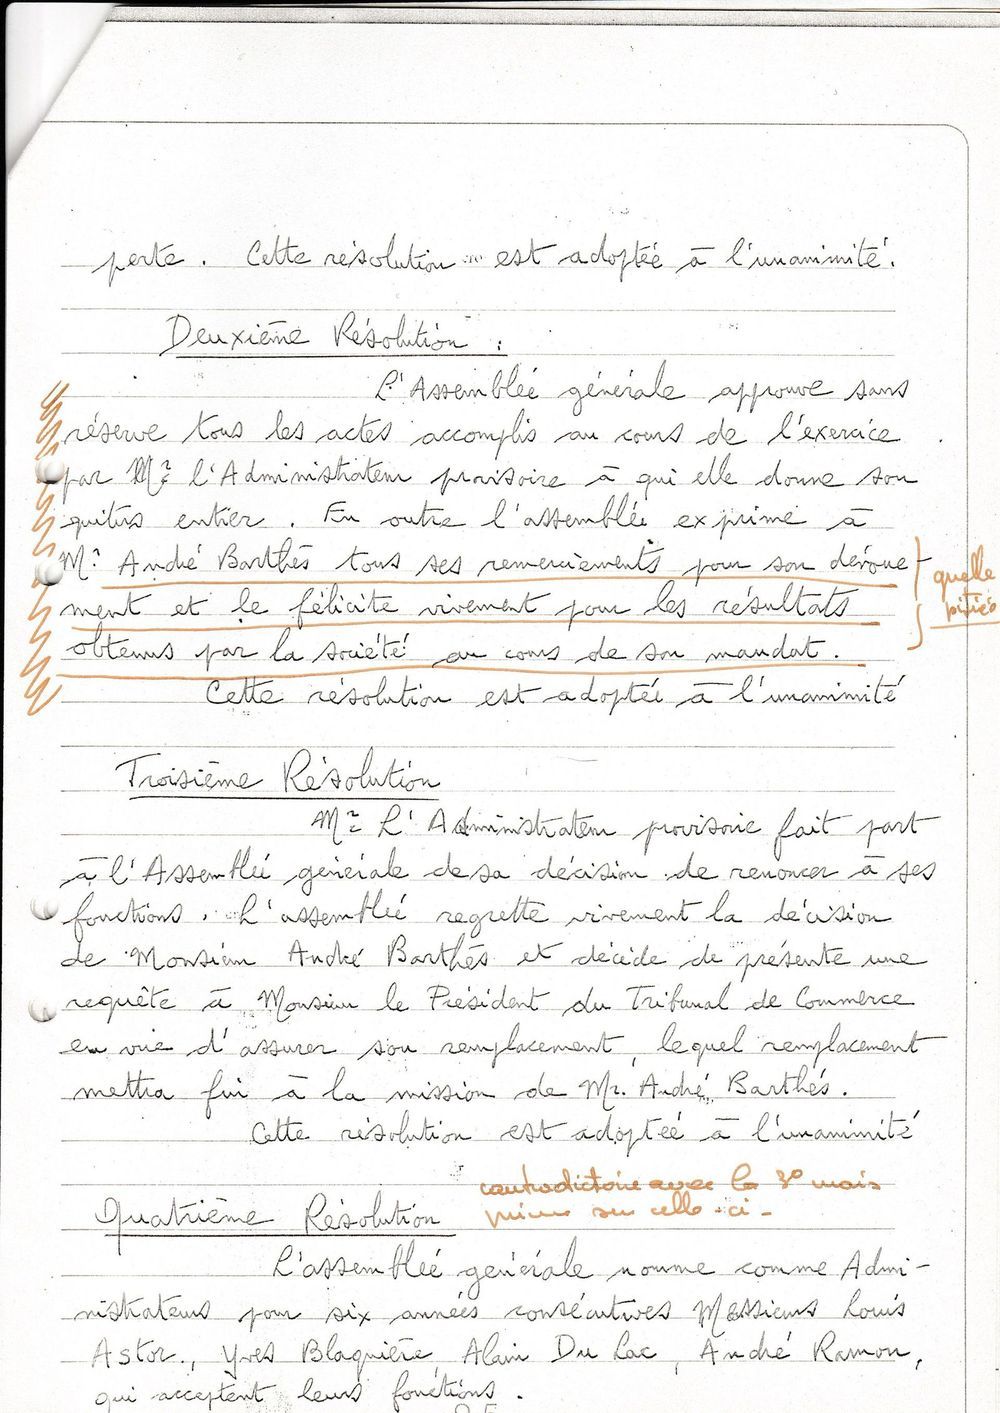 perte. Cette résolution est adoptée à l'unanimité.
Deuxième Résolution :
L'Assemblée générale approuve sans
réserve tous les actes accomplis au cours de l'exercice
par Mr l'Administrateur provisoire à qui elle donne son
quitus entier. En outre l'assemblée exprime à
Mr André Barthés tous ses remerciements pour son dévoue
ment et le félicite vivement pour les résultats
obtenus par la société au cours de son mandat.
quelle
pitié
Cette résolution est adoptée à l'unanimité
Troisième Résolution
Mr L'Administrateur provisoire fait part
à l'Assemblée générale de sa décision de renoncer à ses
fonctions. L'assemblée regrette vivement la décision
de Monsieur André Barthés et décide de présente une
requête à Monsieur le Président du Tribunal de Commerce
en vue d'assurer son remplacement, lequel remplacement
mettra fin à la mission de Mr. André Barthés.
Cette résolution est adoptée à l'unanimité
contradictoire avec la 3° mais
sur celle-ci -
Quatrième Résolution
L'assemblée générale nomme comme Admi-
nistrateurs pour six années consécutives Messieurs Louis
Astor, Yves Blaquière, Alain Du Lac, André Ramon,
qui acceptent leurs fonctions.